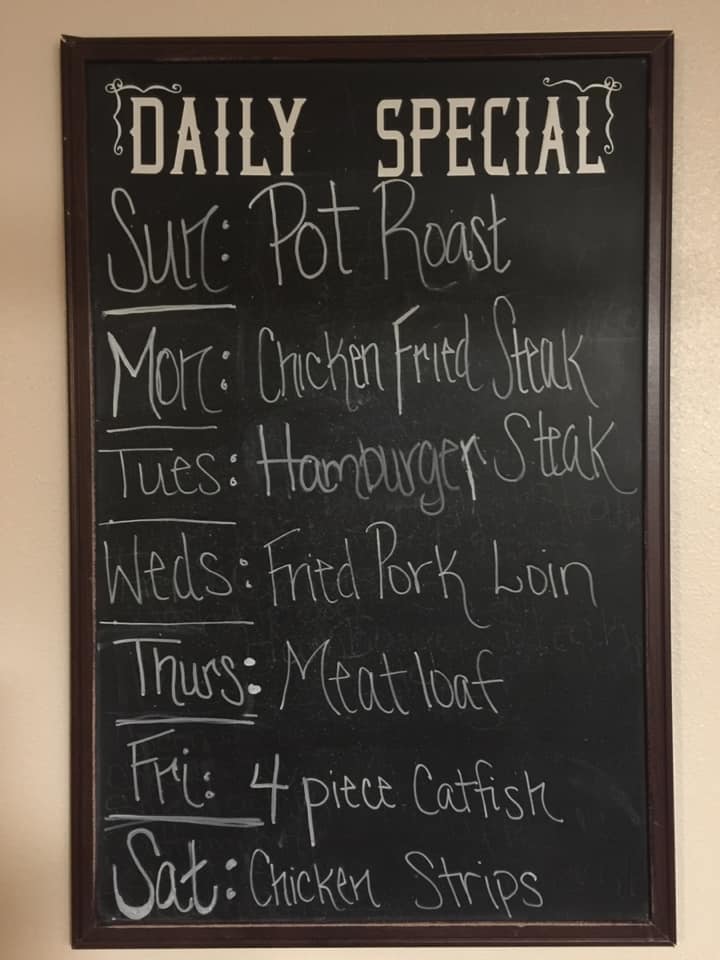 DAILY SPECIAL
Sun: Pot Roast
Mon: Chicken Fried Steak
Tues: Hamburger Steak
Weds: Fried Pork Loin
Thurs: Meatloaf
Fri: 4 piece Catfish
Sat: Chicken Strips